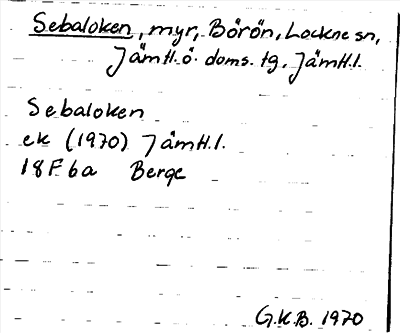 Sebaloken, myr, Börön, Lockne sn,
Jämtl. ö. doms. tg, Jämtl. l.
Sebaloken
ek (1970) Jämtl. l.
18F 6a Berge
G.K.B. 1970